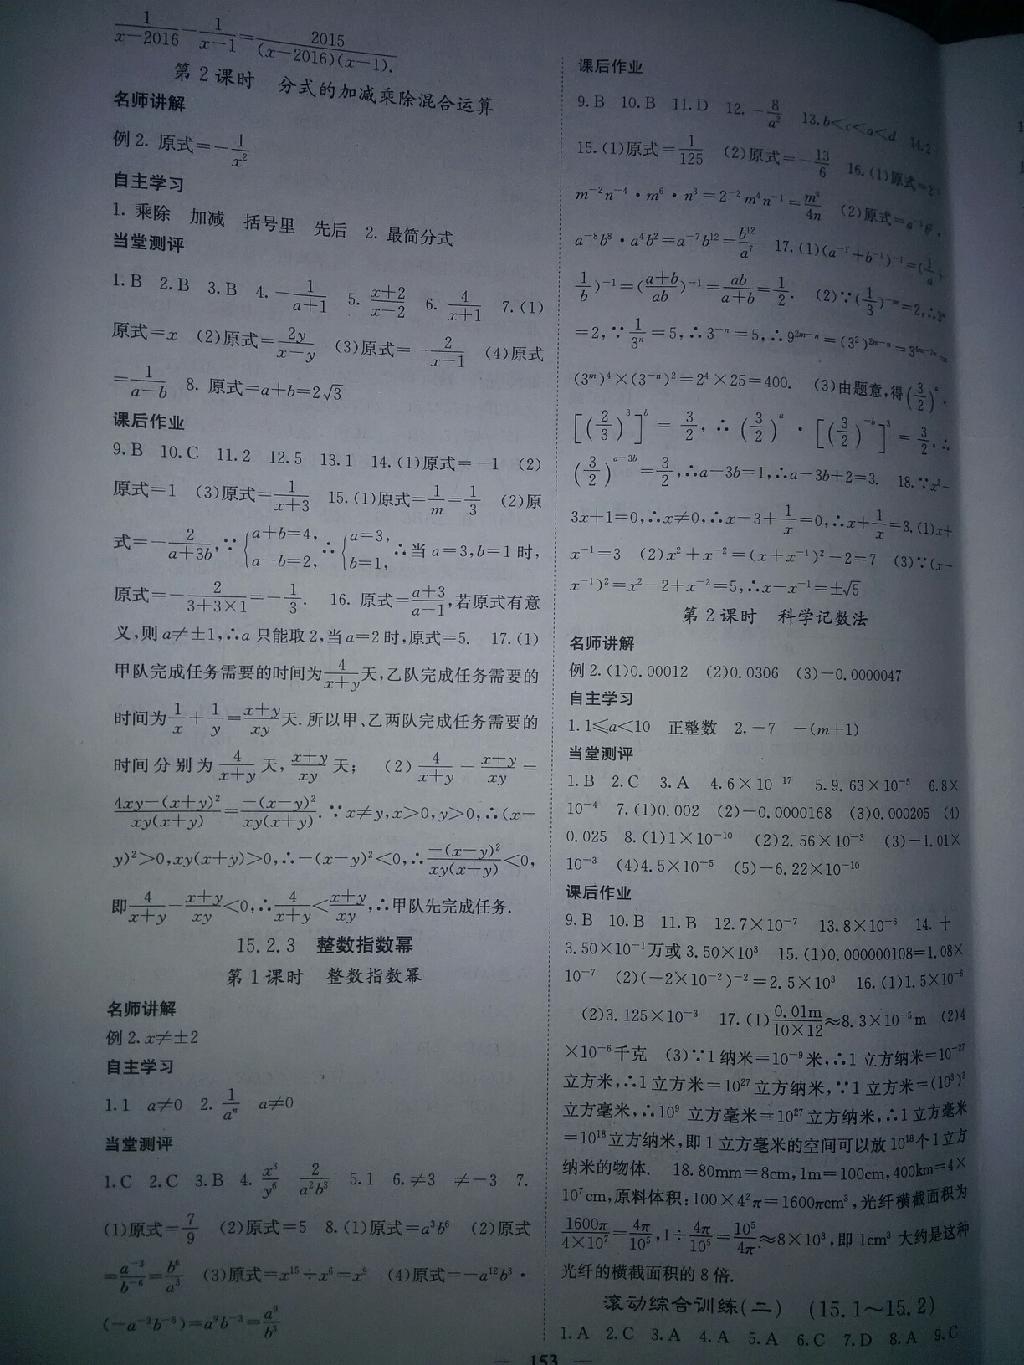 1/(x-2016) - 1/(x-1) = 2015/((x-2016)(x-1)).
第2课时 分式的加减乘除混合运算
名师讲解
例2. 原式=-1/x²
自主学习
1. 乘除 加减 括号里 先后 2. 最简分式
当堂测评
1.B 2.B 3.B 4.-1/(a+1) 5. (x+2)/(x-2) 6. 4/(x+1) 7.(1)
原式=x (2)原式=2y/(x-y) (3)原式= 2/(x-1) (4)原式
=1/(a-b) 8. 原式=a+b=2√3
课后作业
9.B 10.C 11.2 12.5 13.1 14.(1)原式=-1 (2)
原式=1 (3)原式=1/(x+3) 15.(1)原式=1/m=1/3 (2)原
式=-2/(a+3b),∵{a+b=4, a-b=2, ∴{a=3, b=1, ∴当a=3,b=1时,
原式=-2/(3+3×1)=-1/3. 16. 原式=(a+3)/(a-1),若原式有意
义,则a≠±1,∴a只能取2,当a=2时,原式=5. 17.(1)
甲队完成任务需要的时间为4/(x+y)天,乙队完成任务需要的
时间为1/x+1/y=(x+y)/xy天.所以甲、乙两队完成任务需要的
时间分别为4/(x+y)天,(x+y)/xy天; (2)4/(x+y)-(x+y)/xy=
(4xy-(x+y)²)/(xy(x+y))=-(x-y)²/(xy(x+y)).∵x≠y,x>0,y>0,∴(x-
y)²>0,xy(x+y)>0,∴-(x-y)²<0,∴-(x-y)²/(xy(x-y))<0,
即4/(x+y)-(x+y)/xy<0,∴4/(x+y)<(x+y)/xy,∴甲队先完成任务.
15.2.3 整数指数幂
第1课时 整数指数幂
名师讲解
例2.x≠±2
自主学习
1.1 a≠0 2. 1/aⁿ a≠0
当堂测评
1.C 2.C 3.B 4. 2/(a²b³) 5.1 6.≠3 ≠-3 7.
(1)原式=7/9 (2)原式=5 8.(1)原式=a³b⁶ (2)原式
=a⁻³/b⁻⁶=b⁶/a³ (3)原式=x¹⁵÷x⁶=x⁹ (4)原式=-a¹²b³·
(-a⁻³b⁻⁶)=a⁹b⁻³=a⁹/b³
课后作业
9.B 10.B 11.D 12.-8/a² 13.b<c<a<d 14.2
15.(1)原式=1/125 (2)原式=-13/6 16.(1)原式=2
m⁻²n⁻⁴·m⁶·n³=2⁻²m⁴n⁻¹=m⁴/4n (2)原式=
a⁻⁸b⁸·a⁴b²=a⁻⁷b¹²=b¹²/a⁷ 17.(1)(a⁻¹+b⁻¹)⁻¹=(1/a
1/b)⁻¹=((a+b)/ab)⁻¹=ab/(a+b)=1/2. (2)∵(1/3)⁻ᵐ=2,∴3ᵐ
=2,∵1/3ⁿ=5,∴3⁻ⁿ=5,∴9²ᵐ⁻ⁿ=(3²)²ᵐ⁻ⁿ=3⁴ᵐ⁻²ⁿ=
(3ᵐ)⁴×(3⁻ⁿ)²=2⁴×25=400. (3)由题意,得(3/2)ᵃ·
[(2/3)³]ᵇ=3/2,∴(3/2)ᵃ·[(3/2)⁻ᵇ]³=3/2,∴
(3/2)ᵃ⁻³ᵇ=3/2,∴a-3b=1,∴a-3b+2=3. 18.∵x²-
3x+1=0,∴x≠0,∴x-3+1/x=0,∴x+1/x=3.(1)x+
x⁻¹=3 (2)x²+x⁻²=(x+x⁻¹)²-2=7 (3)∵(x-
x⁻¹)²=x²-2+x⁻²=5,∴x-x⁻¹=±√5
第2课时 科学记数法
名师讲解
例2.(1)0.00012 (2)0.0306 (3)-0.0000047
自主学习
1.1≤a<10 正整数 2.-7 -(m+1)
当堂测评
1.B 2.C 3.A 4.6×10⁻¹⁷ 5.9.63×10⁻⁵ 6.8×
10⁻⁴ 7.(1)0.002 (2)-0.0000168 (3)0.000205 (4)
0.025 8.(1)1×10⁻¹⁰ (2)2.56×10⁻³ (3)-1.01×
10⁻³ (4)4.5×10⁻⁵ (5)-6.22×10⁻¹⁰
课后作业
9.B 10.B 11.B 12.7×10⁻⁷ 13.8×10⁻⁸ 14.十
3.50×10⁻¹万或3.50×10³ 15.(1)0.000000108=1.08×
10⁻⁷ (2)(-2×10⁻²)⁻²=2.5×10³ 16.(1)1.5×10⁻⁶
(2)3.125×10⁻³ 17.(1)0.01m/(10×12)≈8.3×10⁻⁵m (2)4
×10⁻⁶千克 (3)∵1纳米=10⁻⁹米,∴1立方纳米=10⁻²⁷
立方米,∴1立方米=10²⁷立方纳米,∵1立方米=(10³)³
立方毫米,∴10⁹立方毫米=10²⁷立方纳米,∴1立方毫米
=10¹⁸立方纳米,即1立方毫米的空间可以放10¹⁸个1立方
纳米的物体. 18.80mm=8cm,1m=100cm,400km=4×
10⁷cm,原料体积:100×4²π=1600πcm³,光纤横截面积为
1600π/(4×10⁷)=4π/10⁵,1÷4π/10⁵=10⁵/4π≈8×10³,即1cm²大约是这种
光纤的横截面积的8倍.
滚动综合训练(二) (15.1～15.2)
1.A 2.C 3.A 4.A 5.A 6.C 7.D 8.A 9.C
— 153 —